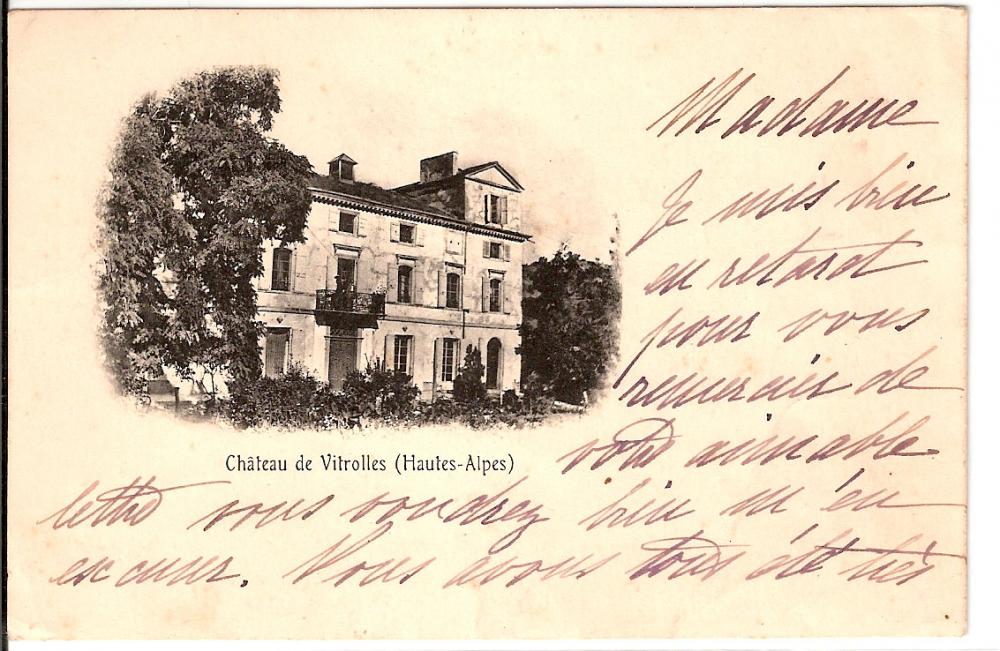 Madame
Je suis bien
en retard
pour vous
remercier de
votre aimable
Château de Vitrolles (Hautes-Alpes)
lettre vous voudrez bien m'en
excuser. Nous avons tous été très